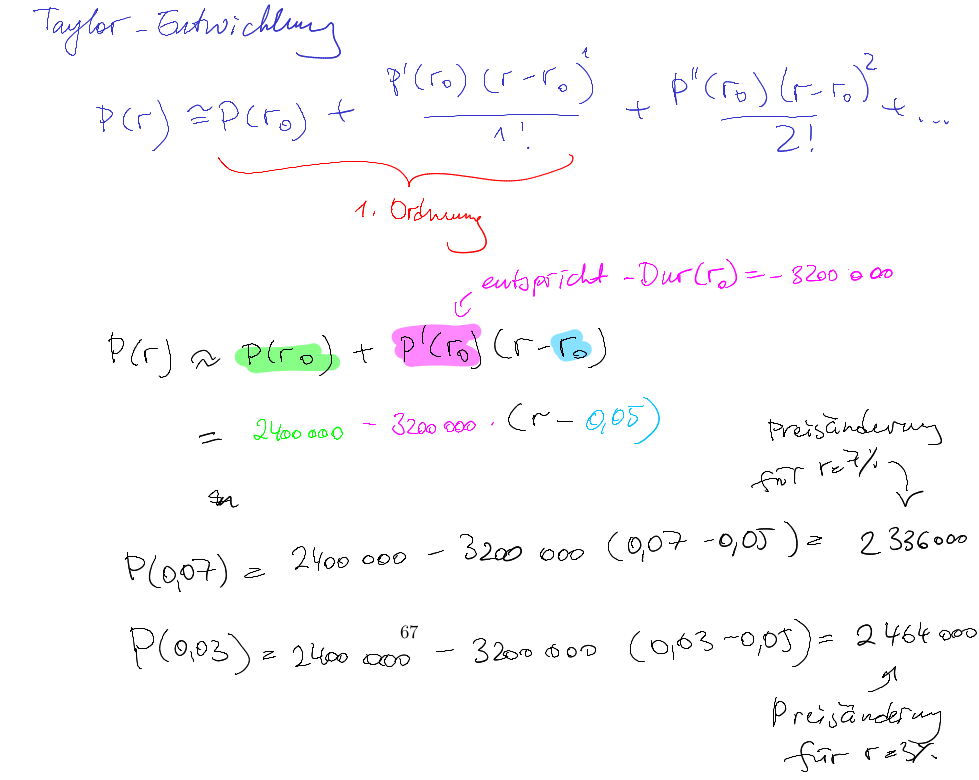 Taylor-Entwicklung
P(r) ≅ P(r₀) + P'(r₀)(r-r₀)¹/1! + P''(r₀)(r-r₀)²/2! + ...
1. Ordnung
entspricht -Dur(r₀) = - 3200 000
P(r) ≈ P(r₀) + P'(r₀)(r-r₀)
= 2400 000 - 3200 000 · (r - 0,05)
Preisänderung
für r=7%
P(0,07) = 2400 000 - 3200 000 (0,07 - 0,05) = 2 336000
P(0,03) = 2400 000 - 3200 000 (0,03 - 0,05) = 2 464 000
67
Preisänderung
für r=3%